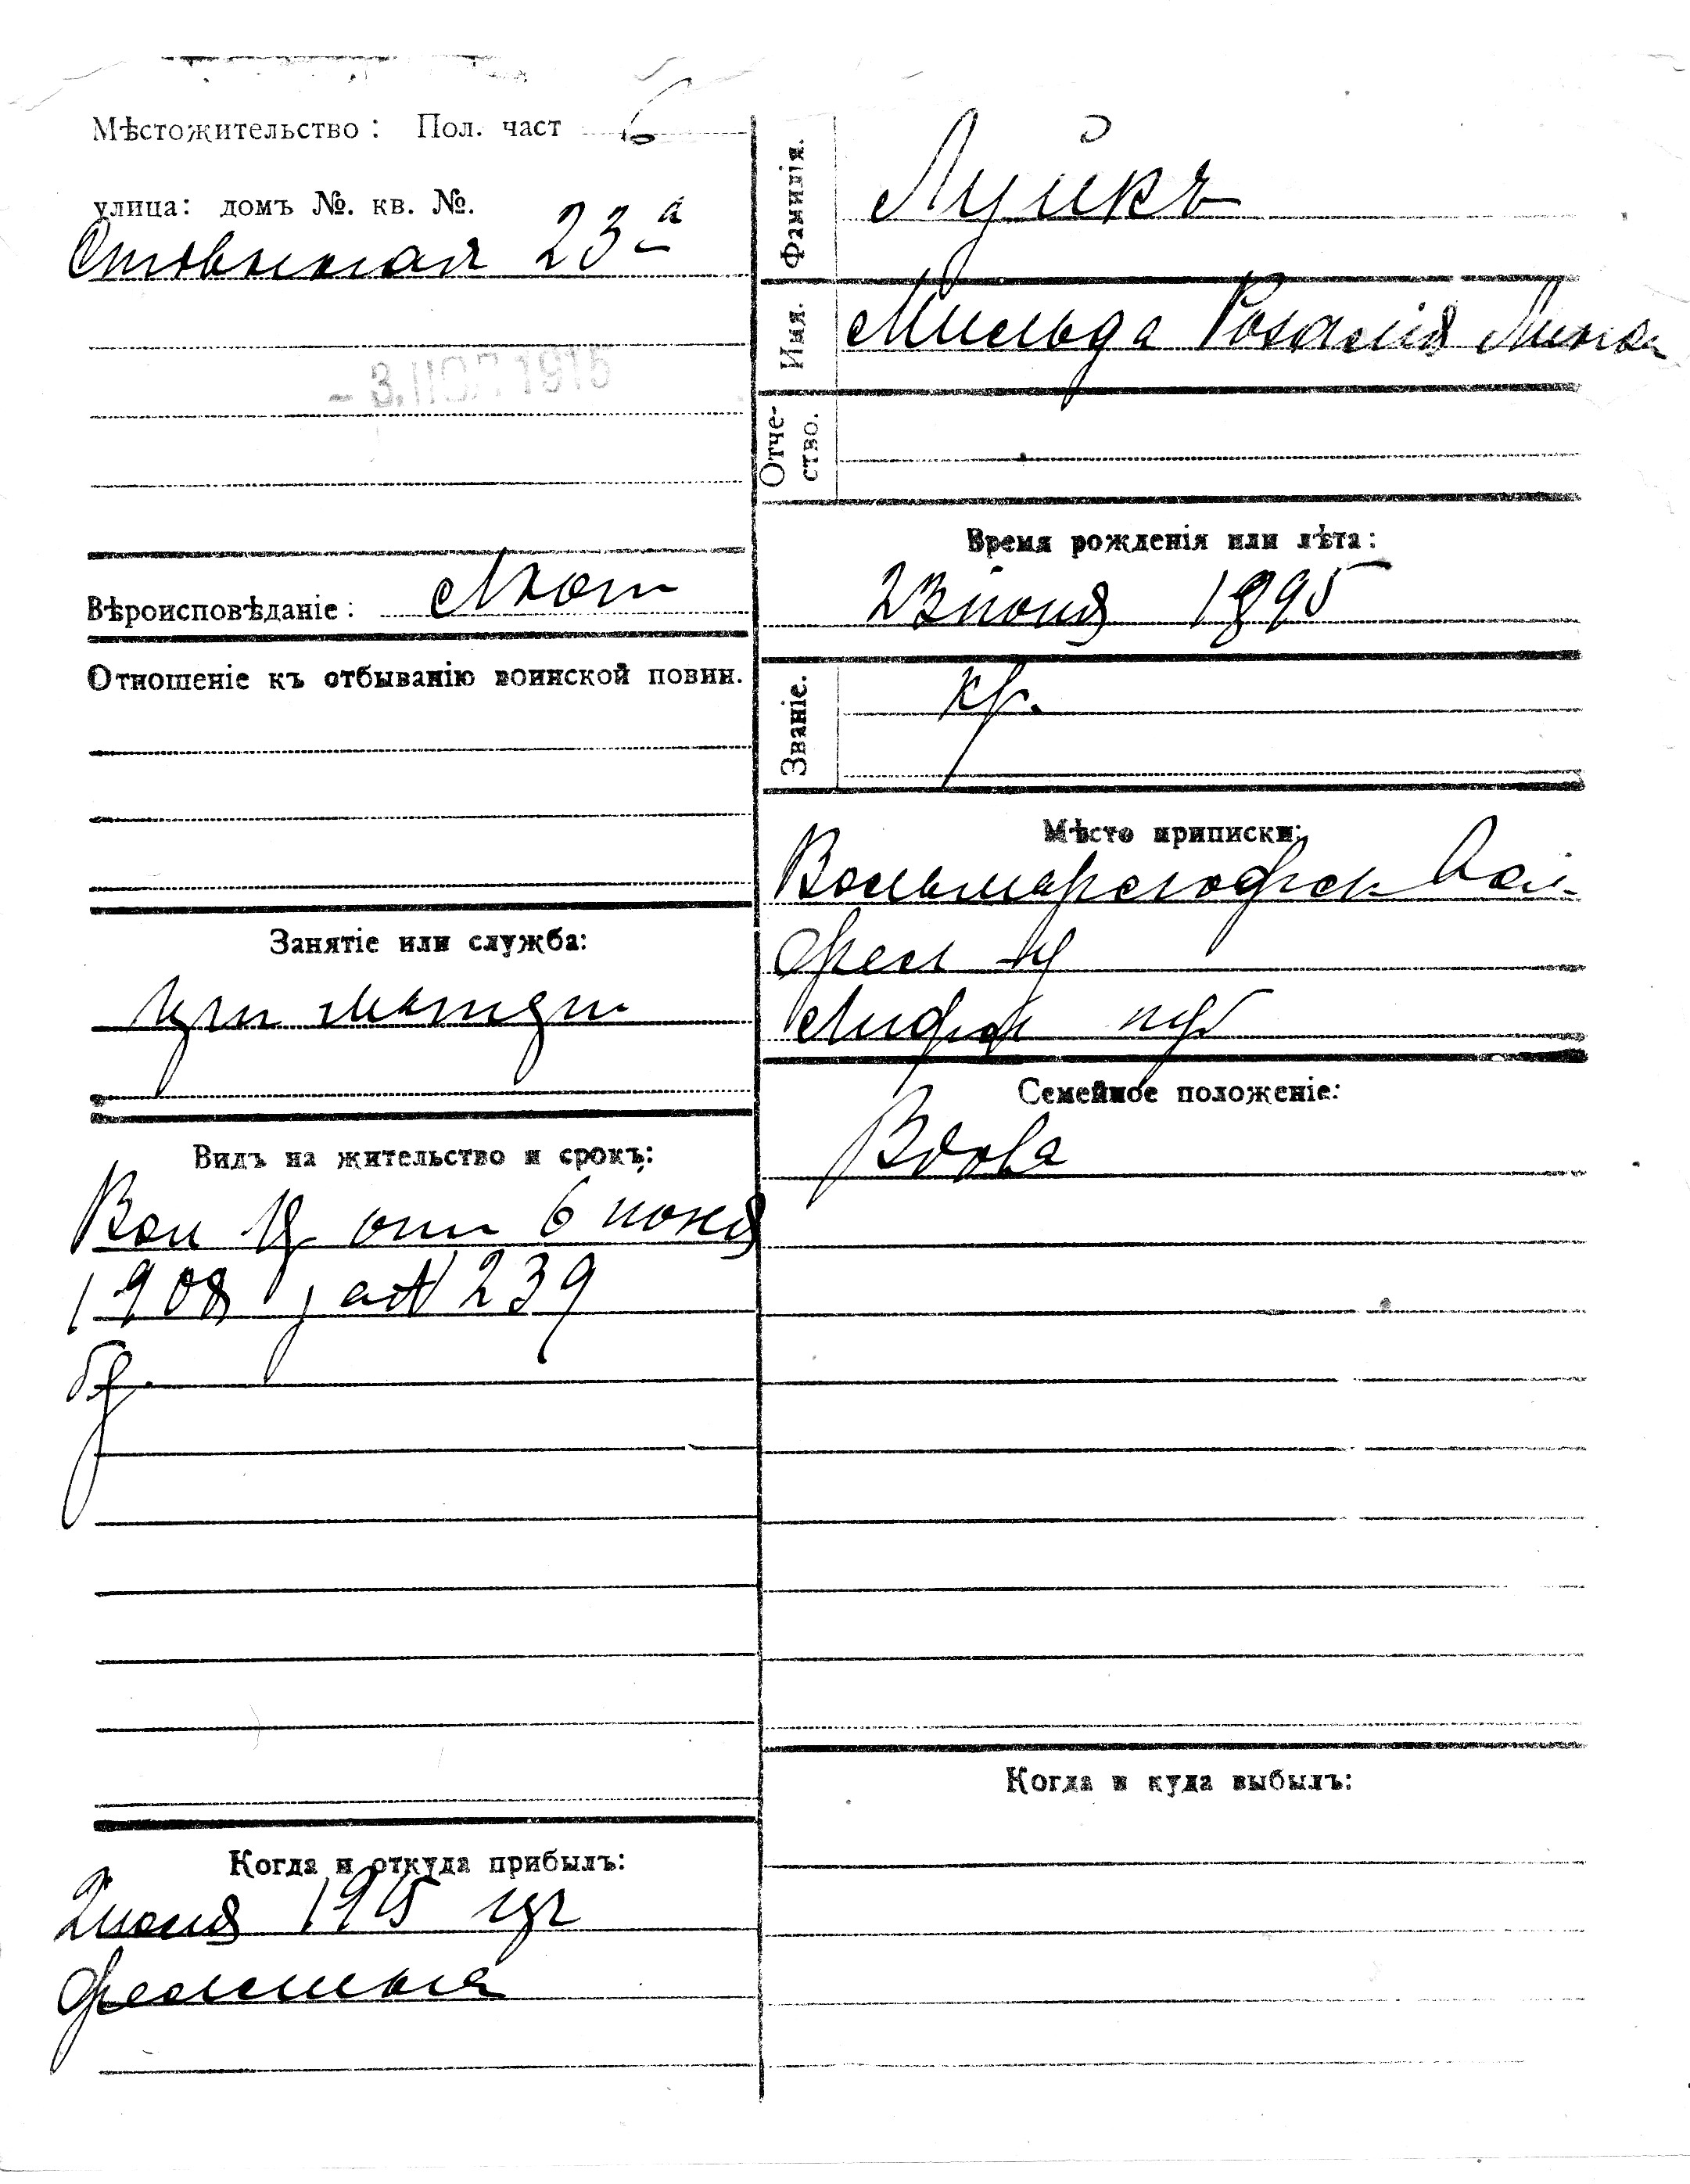 Мѣстожительство: Пол. част 6
улица: домъ №. кв. №.
23 а
- 3. ІЮЛ 1915
Вѣроисповѣданіе: Лют
Отношеніе къ отбыванію воинской повин.
Занятіе или служба:
при матери
Видъ на жительство и срокъ:
Вол пр отъ 6 июня
1908 за № 239
бз.
Когда и откуда прибылъ:
1915 изъ
Феллина
Фамилія. Луйкъ
Имя. Мильда Розалія Минна
Отче-
ство.
Время рожденія или лѣта:
23 июня 1895
Званіе. кр.
Мѣсто приписки:
Вольмарсгофск вол
Фелл у
Лифл губ
Семейное положеніе:
Вдова
Когда и куда выбылъ: